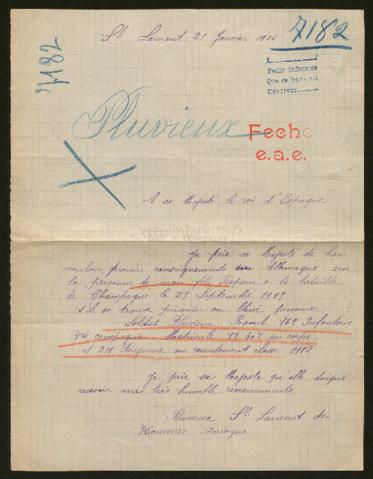 7182
St Laurent 21 Janvier 1916
7182
A
Pedir informes
Que se haga así
Devolver
Pluvieux
Feche
e.a.e.
A sa Majesté le roi d'Espagne
Je prie sa Majesté de bien
vouloir prendre renseignements en Allemagne sur
la personne de mon fils disparu à la bataille
de Champagne le 29 Septembre 1915
s'il se trouve prisonier ou blessé prisonier
Soldat Pluvieux 162 Infanterie
compagnie Matricule au corps
et 211 au recrutement classe 1912
Je prie sa Majesté qu'elle daigne
recevoir mes très humble remerciements
St Laurent des
Hommes Dordogne